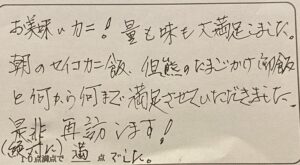 お美味いカニ！量も味も大満足しました。
朝のセイコカニ飯、但熊のたまごかけご飯
と何から何まで満足させていただきました。
是非再訪します！
(絶対に)
10点満点で 満 点でした。